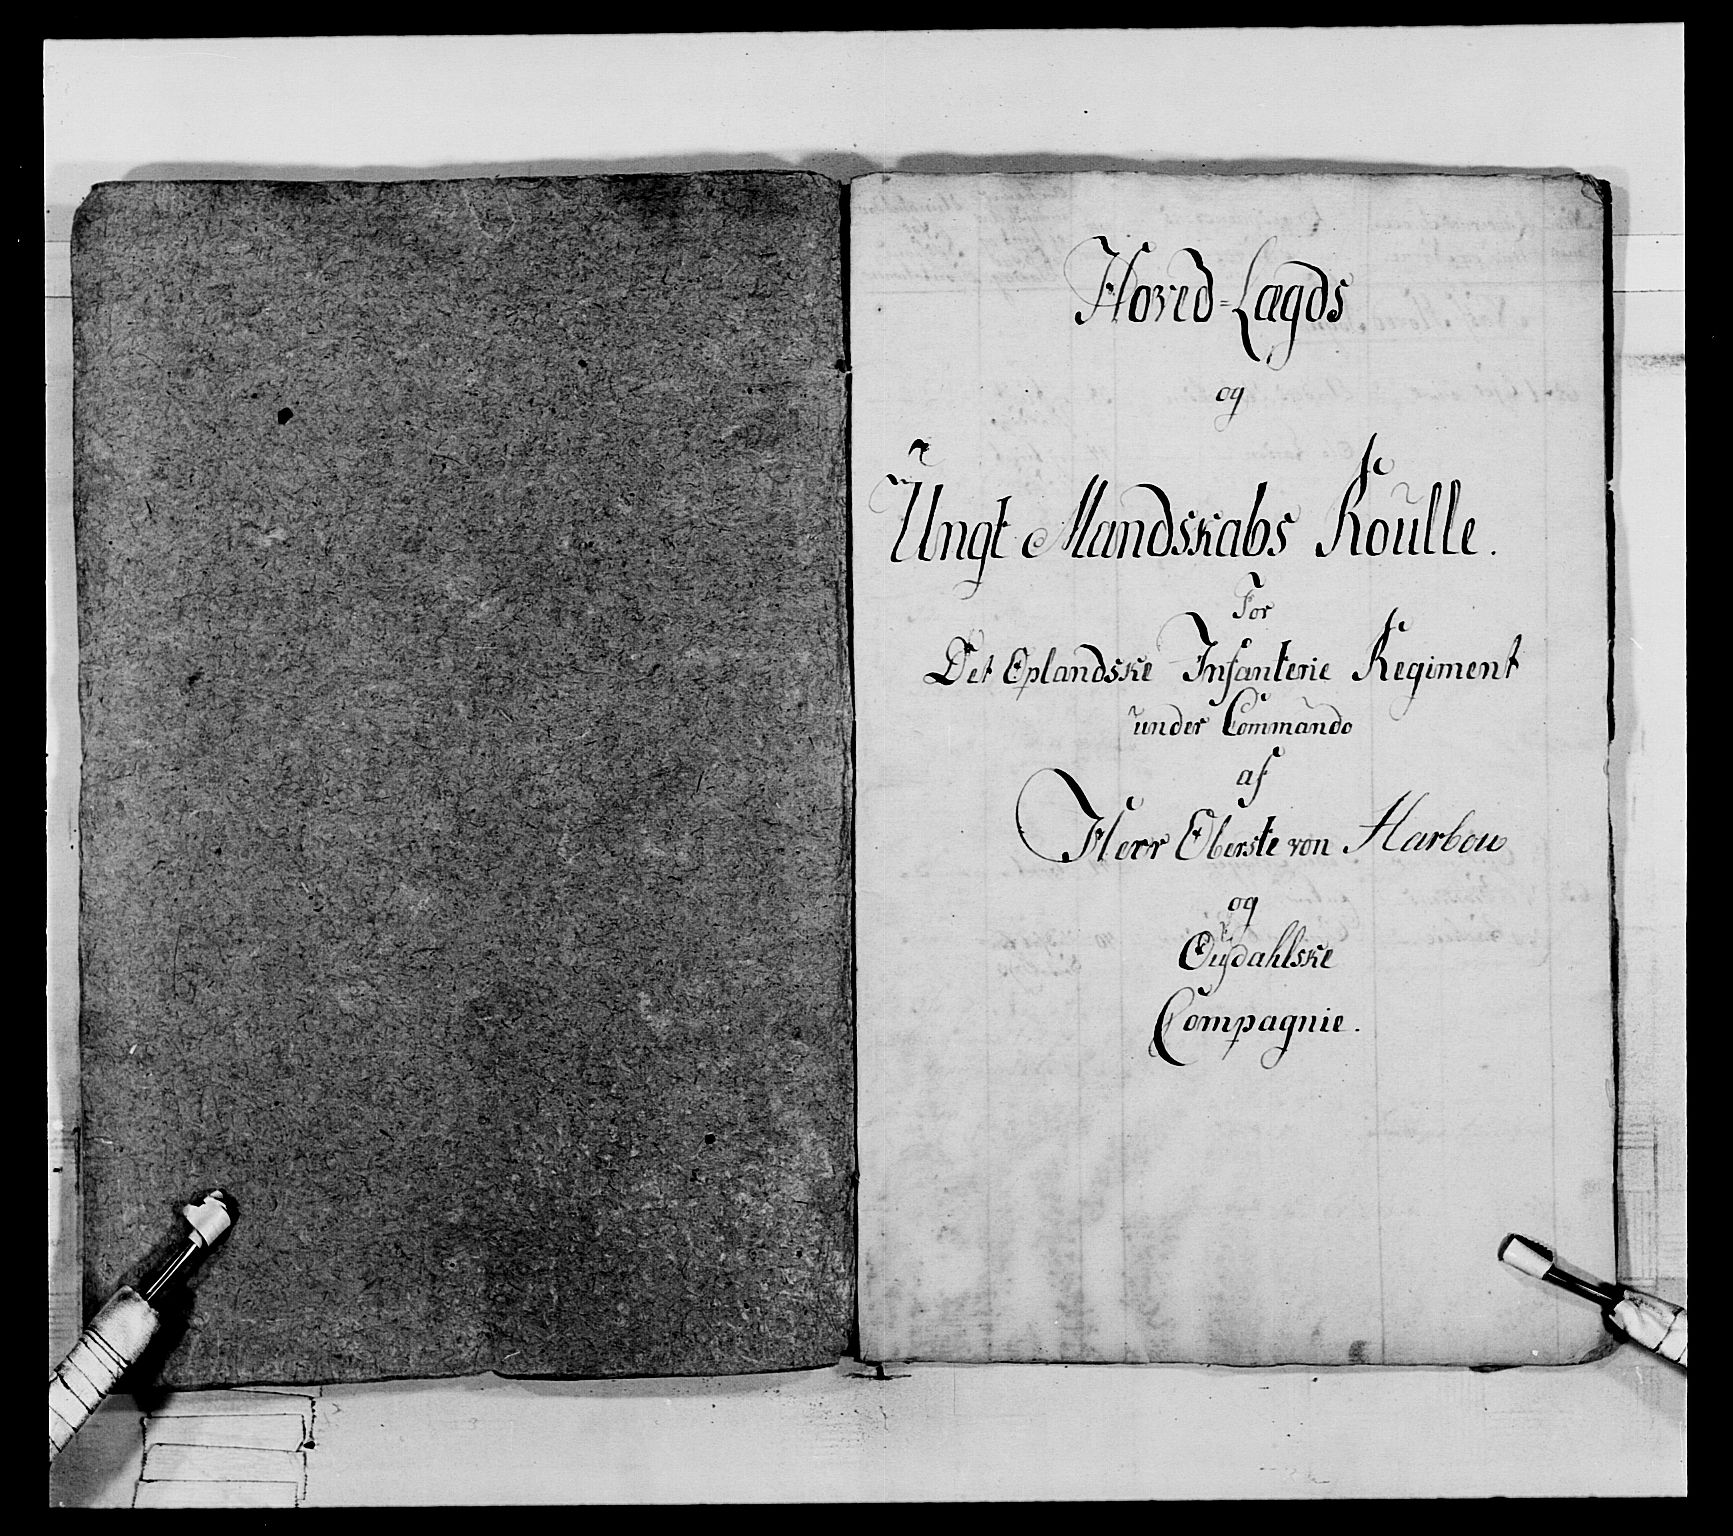 Hoved=Lægds
og
Ungt Mandskabs Roulle.
For
Det Oplandske Infanterie Regiment
under Commando
af
Herr Oberste von Harbou
og
Compagnie.